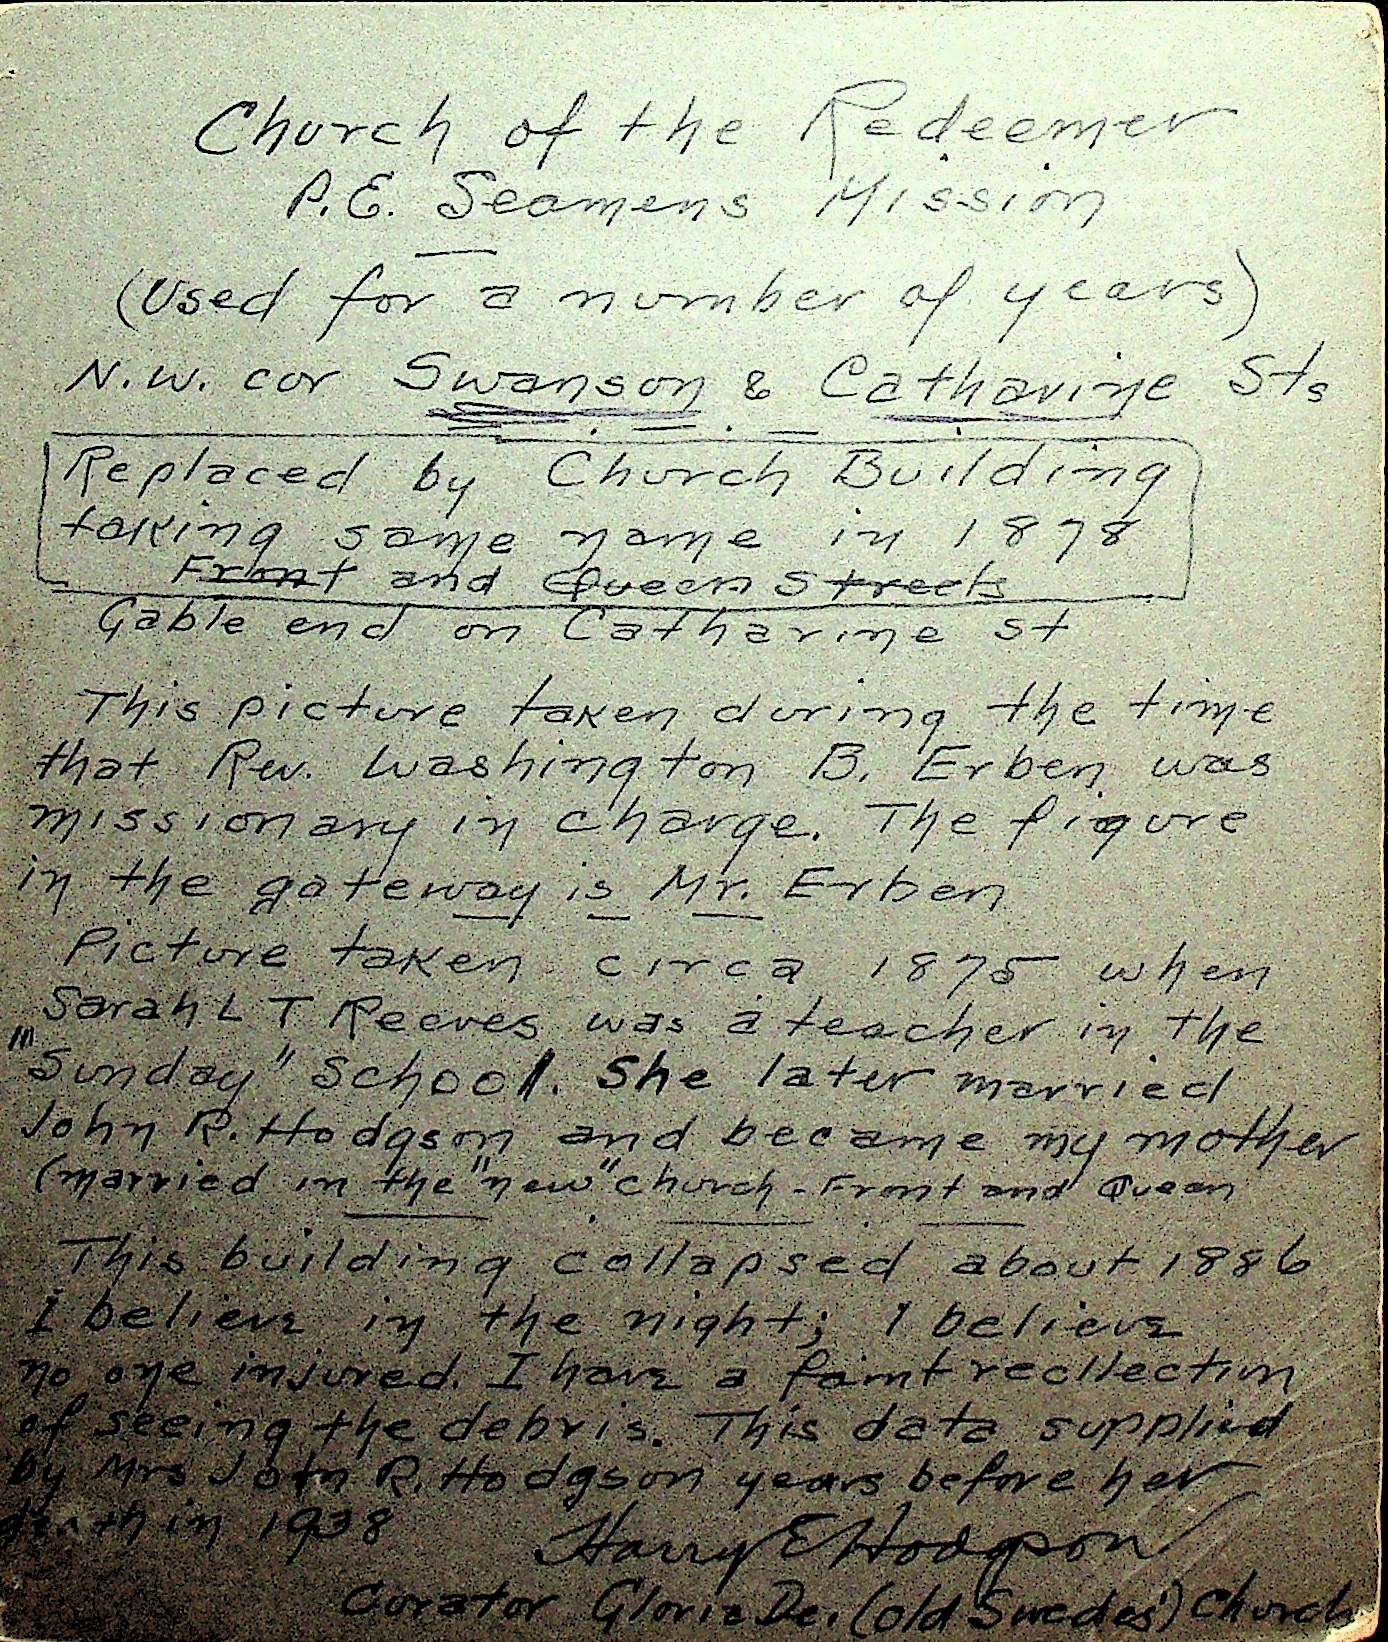 Church of the Redeemer
P.E. Seamens Mission
(Used for a number of years)
N.W. cor Swanson & Catharine Sts
Replaced by Church Building
taking same name in 1878
Front and Queen Streets
Gable end on Catharine St
This picture taken during the time
that Rev. Washington B. Erben was
missionary in charge. The figure
in the gateway is Mr. Erben
Picture taken circa 1875 when
Sarah L T Reeves was a teacher in the
"Sunday" School. She later married
John R. Hodgson and became my mother
(married in the "new" church - Front and Queen
This building collapsed about 1886
I believe in the night; I believe
no one injured. I have a faint recllection
of seeing the debris. This data supplied
by Mrs John R. Hodgson years before her
death in 1938
Harry E Hodgson
Curator Gloria Dei (Old Swedes') Church